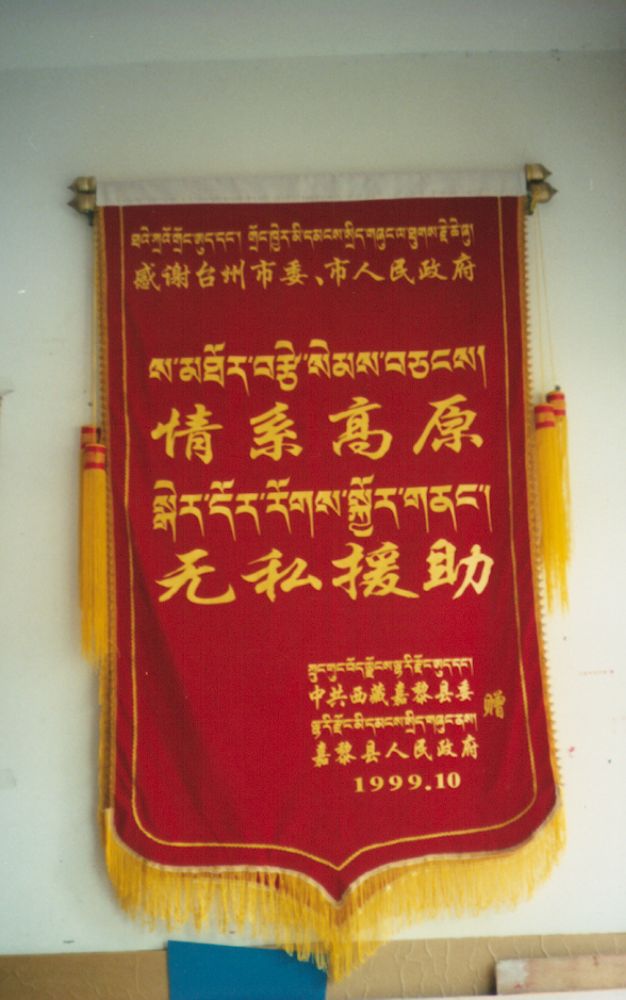 ཐའེ་ཀྲའོ་གྲོང་ཨུད་དང་། གྲོང་ཁྱེར་མི་དམངས་སྲིད་གཞུང་ལ་ཐུགས་རྗེ་ཆེ་ཞུ།
感谢台州市委、市人民政府
ས་མཐོར་བརྩེ་སེམས་བཅངས།
情系高原
སྒེར་དོར་རོགས་སྐྱོར་གནང་།
无私援助
ཀྲུང་གུང་བོད་ལྗོངས་ལྷ་རི་རྫོང་ཨུད་དང་
中共西藏嘉黎县委
ལྷ་རི་རྫོང་མི་དམངས་སྲིད་གཞུང་ནས།
嘉黎县人民政府
赠
1999.10